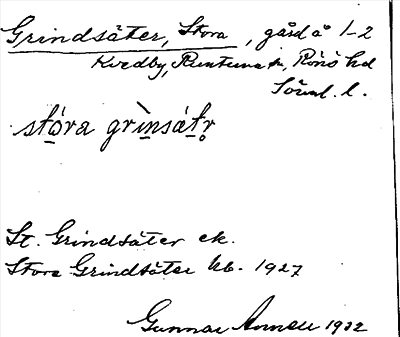 Grindsäter, Stora, gård å 1-2
Kvedby, Runtuna sn, Rönö hd
Söml. l.
stóra grìnsátr̥
St. Grindsäter ek.
Stora Grindsäter hb. 1927
Gunnar 1932